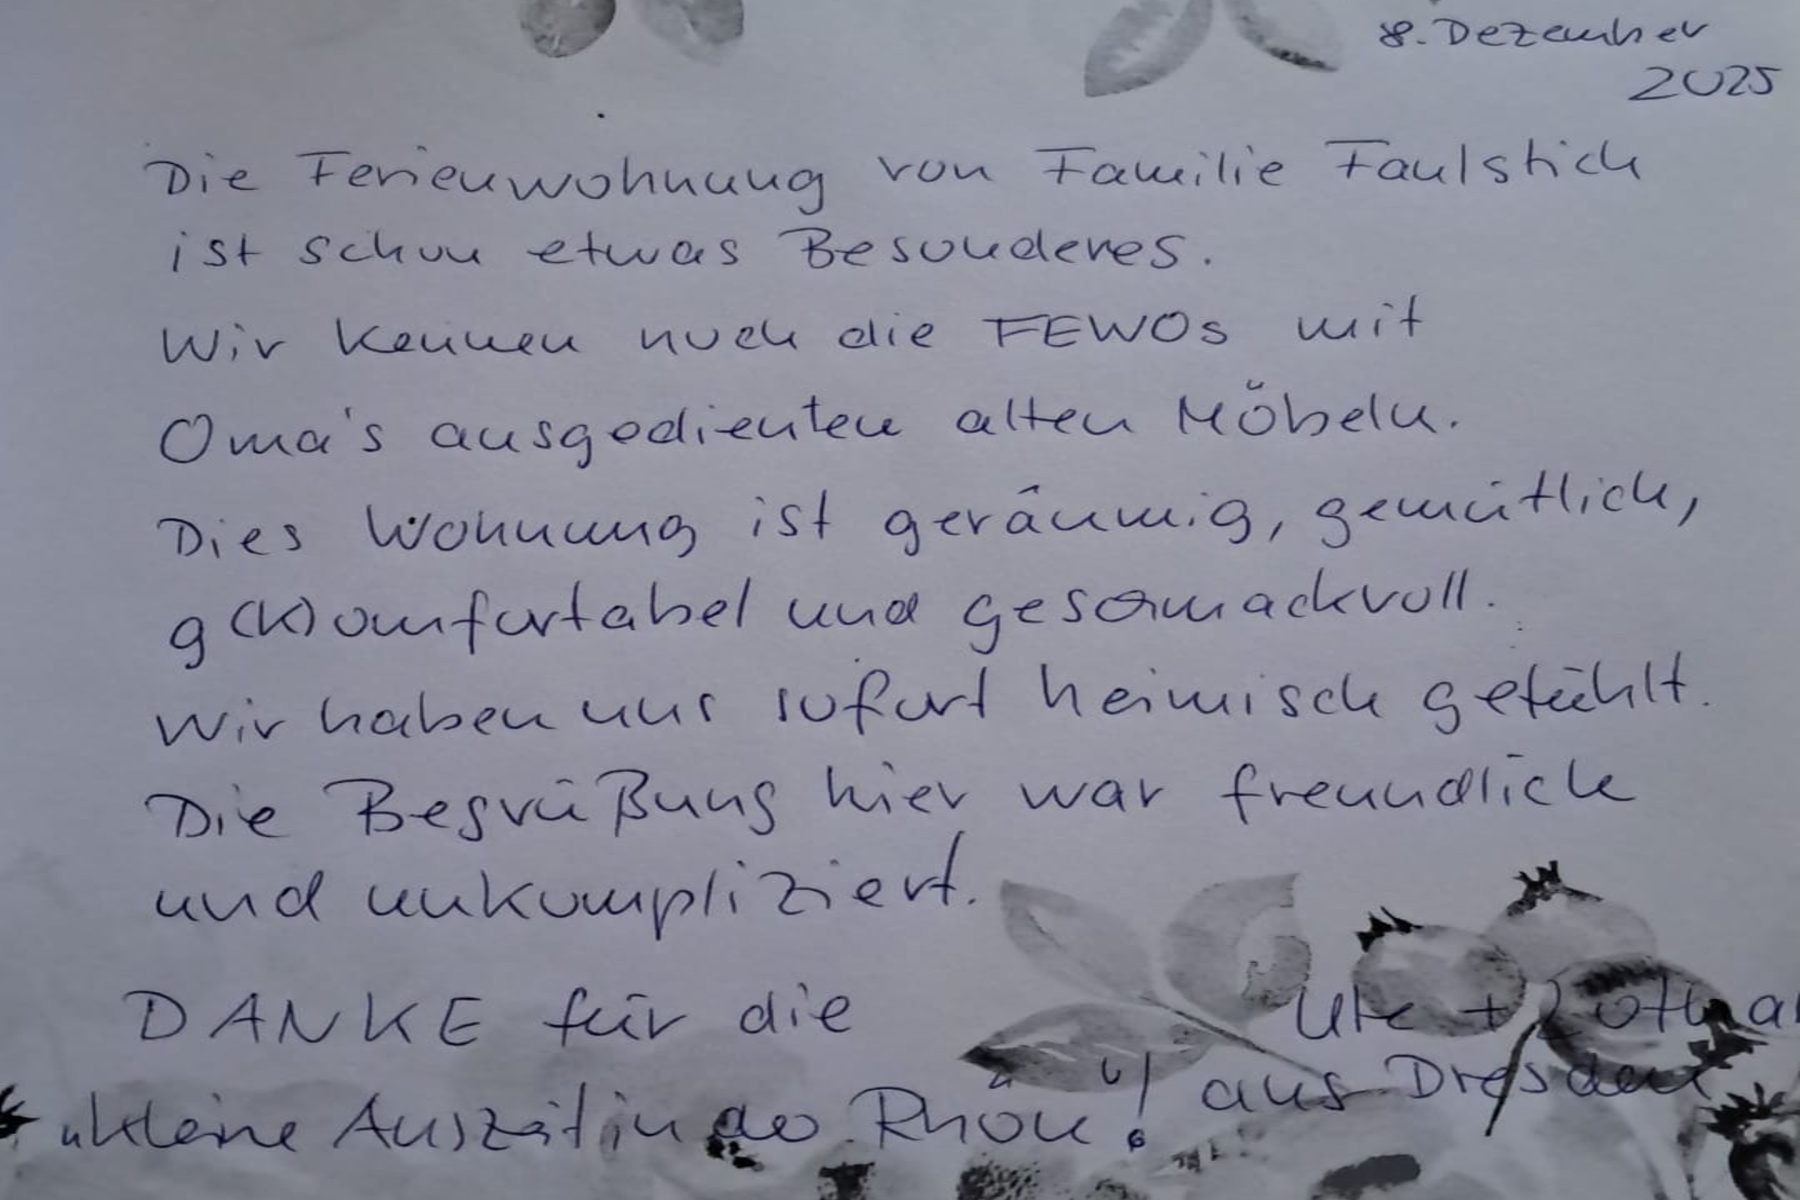 8. Dezember
2025
Die Ferienwohnung von Familie Faulstich
ist schon etwas Besonderes.
Wir kennen noch die FEWOs mit
Oma's ausgedienten alten Möbeln.
Dies Wohnung ist geräumig, gemütlich,
g(k)omfortabel und geschmackvoll.
Wir haben uns sofort heimisch gefühlt.
Die Begrüßung hier war freundlich
und unkompliziert.
DANKE für die
„kleine Auszeit in der Rhön“!
Ute + Lothar
aus Dresden